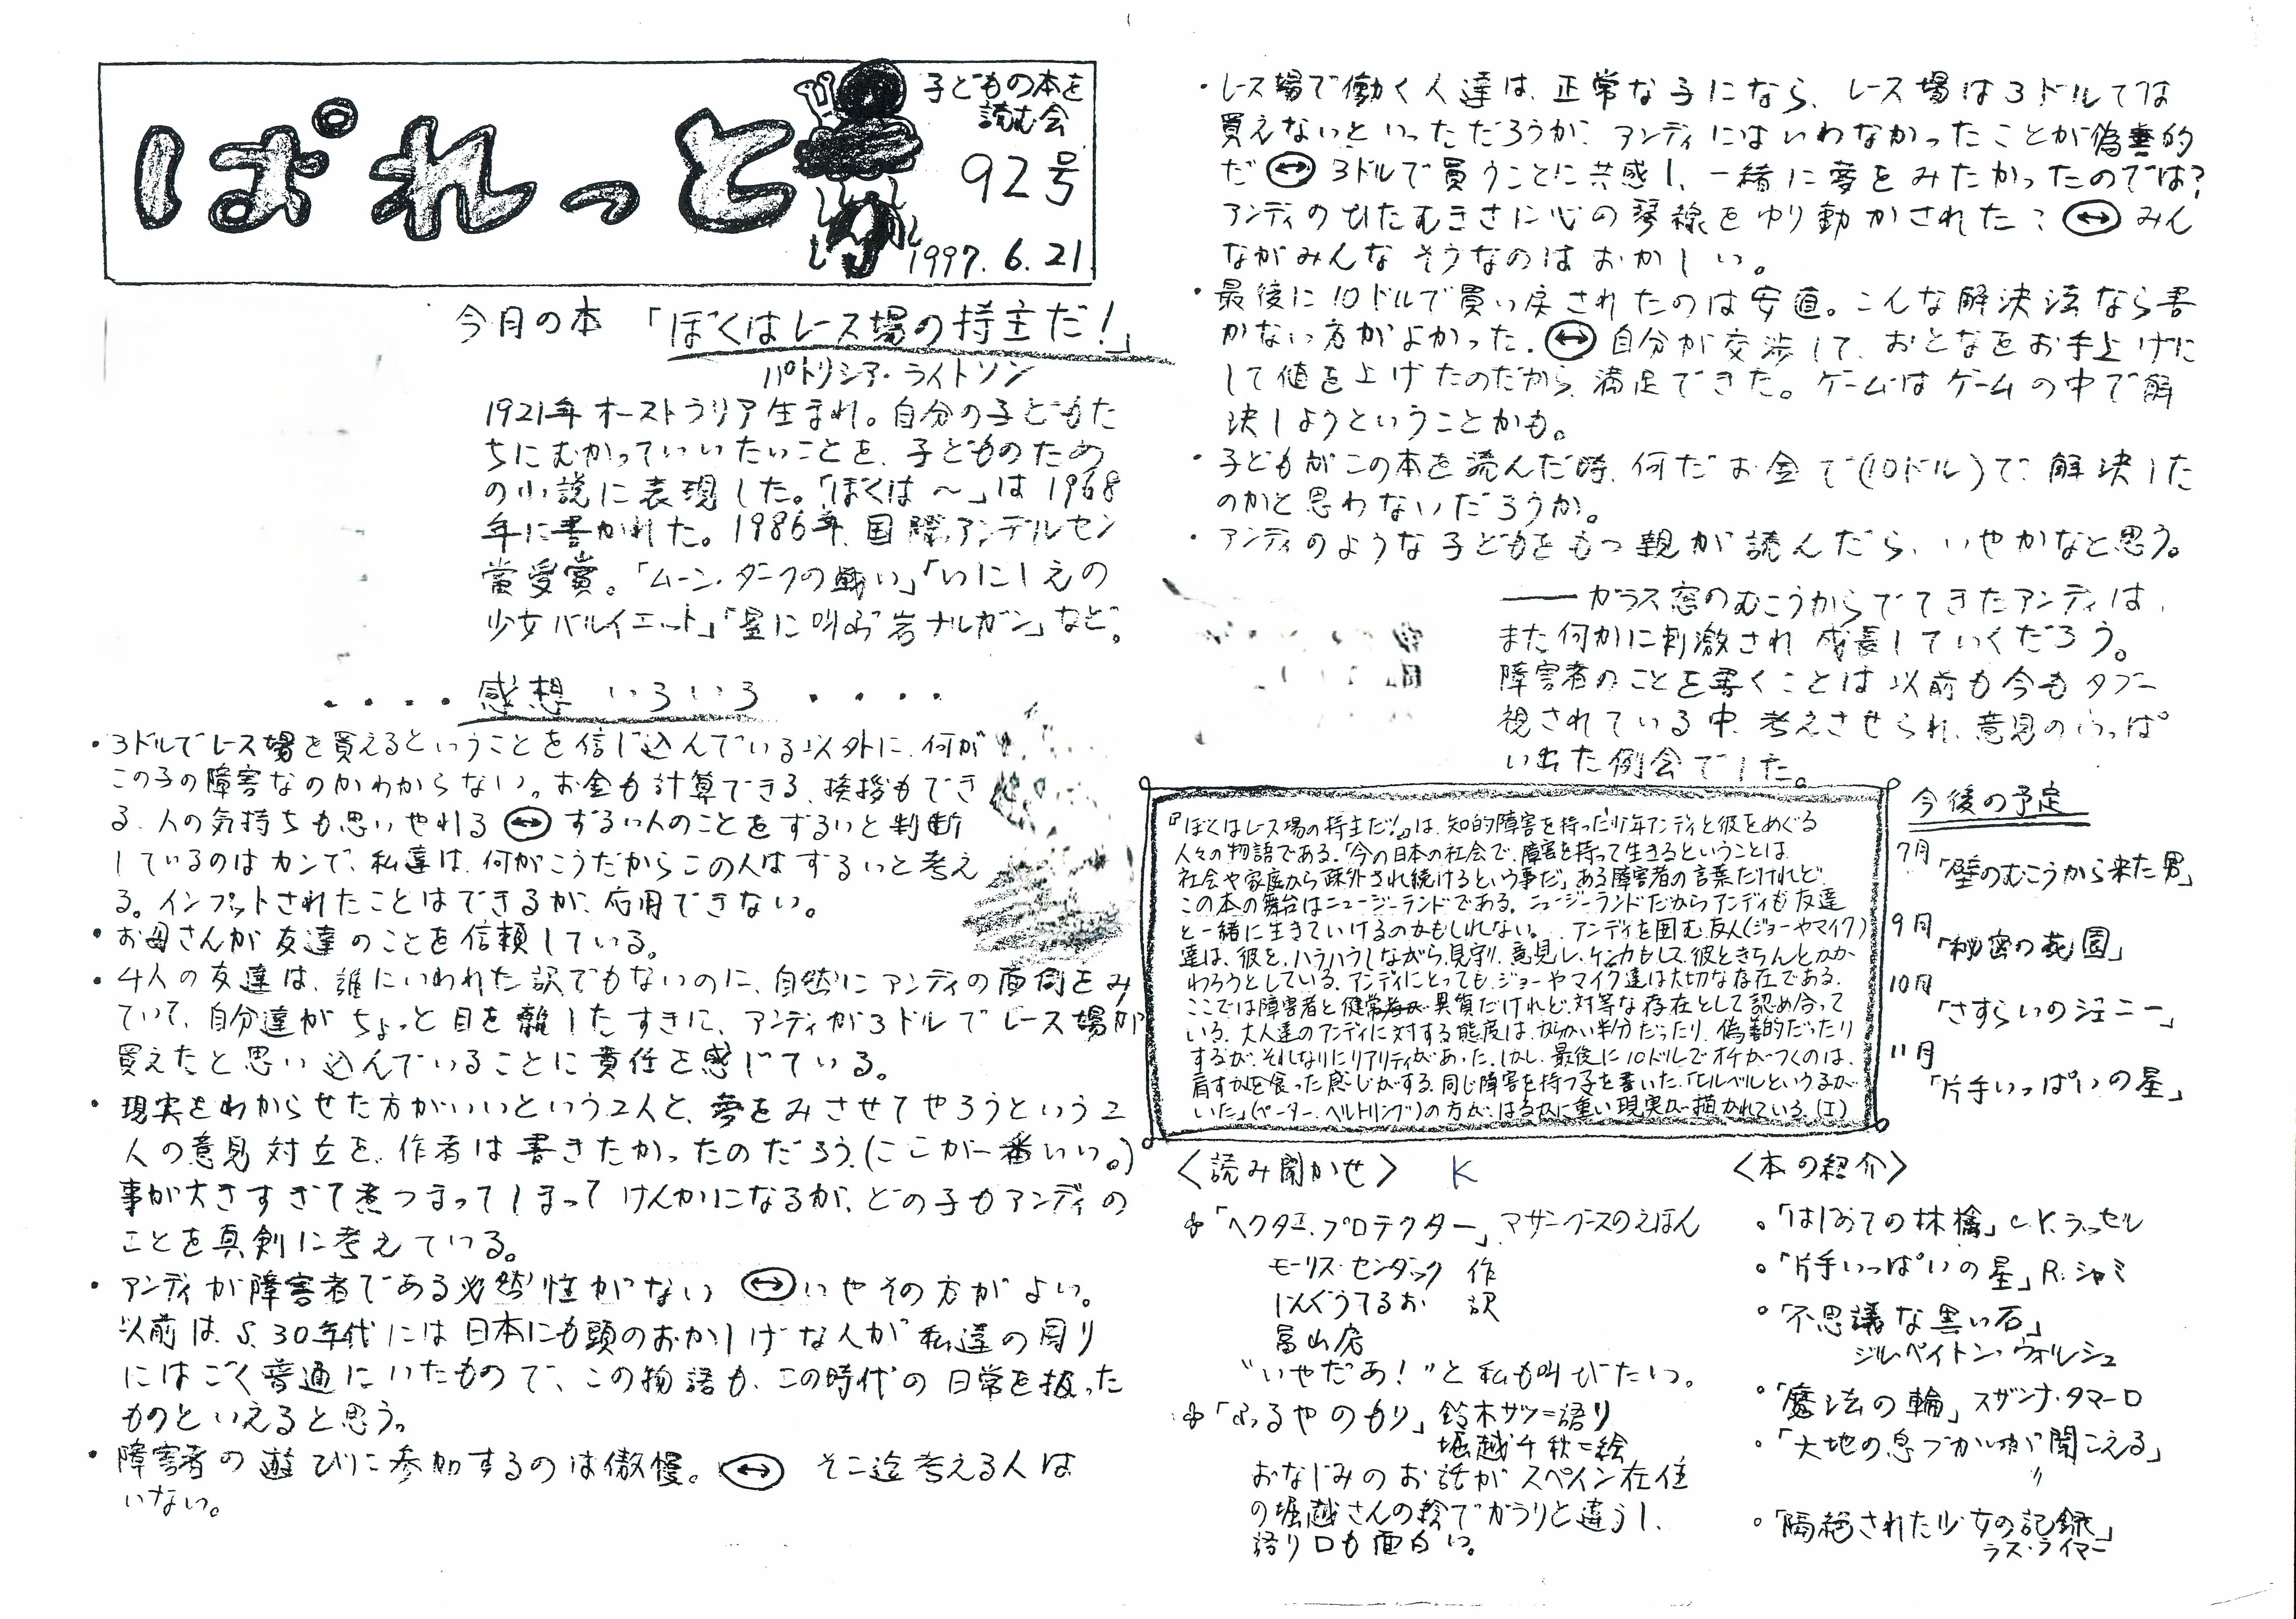 ぱれっと
子どもの本を
読む会
92号
1997.6.21
今月の本 「ぼくはレース場の持主だ!」
パトリシア・ライトソン
1921年オーストラリア生まれ。自分の子どもた
ちにむかっていいたいことを、子どものため
の小説に表現した。「ぼくは〜」は1968
年に書かれた。1986年、国際アンデルセン
賞受賞。「ムーン・ダークの戦い」「いにしえの
少女バルイエット」「星に叫ぶ岩ナルガン」など。
・・・・感想 いろいろ・・・・
・3ドルでレース場を買えるということを信じ込んでいる以外に、何が
この子の障害なのかわからない。お金も計算できる、挨拶もでき
る、人の気持ちも思いやれる ↔ ずるい人のことをずるいと判断
しているのはカンで、私達は、何がこうだからこの人はずるいと考え
る。インプットされたことはできるが、応用できない。
・お母さんが友達のことを信頼している。
・4人の友達は、誰にいわれた訳でもないのに、自然にアンディの面倒をみ
ていて、自分達がちょっと目を離したすきに、アンディが3ドルでレース場が
買えたと思い込んでいることに責任を感じている。
・現実をわからせた方がいいという2人と、夢をみさせてやろうという2
人の意見対立を、作者は書きたかったのだろう。(ここが一番いい。)
事が大きすぎて煮つまってしまってけんかにになるが、どの子もアンディの
ことを真剣に考えている。
・アンディが障害者である必然性がない ↔ いやその方がよい。
以前は、S.30年代には日本にも頭のおかしげな人が私達の周り
にはごく普通にいたもので、この物語も、この時代の日常を扱った
ものといえると思う。
・障害者の遊びに参加するのは傲慢。 ↔ そこ迄考える人は
いない。
・レース場で働く人達は、正常な子になら、レース場は3ドルでは
買えないといっただろうが、アンディにはいわなかったことが偽善的
だ ↔ 3ドルで買うことに共感し、一緒に夢をみたかったのでは?
アンディのひたむきさに心の琴線をゆり動かされた? ↔ みん
ながみんなそうなのはおかしい。
・最後に10ドルで買い戻されたのは安直。こんな解決法なら書
かない方がよかった。 ↔ 自分が交渉して、おとなをお手上げに
して値を上げたのだから、満足できた。ゲームはゲームの中で解
決しようということかも。
・子どもがこの本を読んだ時、何だお金で(10ドル)で、解決した
のかと思わないだろうか。
・アンディのような子どもをもつ親が読んだら、いやかなと思う。
――ガラス窓のむこうからでてきたアンディは、
また何かに刺激され成長していくだろう。
障害者のことを書くことは以前も今もタブー
視されている中、考えさせられ、意見のいっぱ
い出た例会でした。
『ぼくはレース場の持主だ!』は、知的障害を持った少年アンディと彼をめぐる
人々の物語である。「今の日本の社会で、障害を持って生きるということは、
社会や家庭から疎外され続けるという事だ」ある障害者の言葉だけれど、
この本の舞台はニュージーランドである。ニュージーランドだからアンディも友達
と一緒に生きていけるのかもしれない。 アンディを囲む友人(ジョーやマイク)
達は、彼と、ハラハラしながら、見守り、意見し、ケンカもして、彼ときちんとかか
わろうとしている。アンディにとっても、ジョーやマイク達は大切な存在である。
ここでは障害者と健常者が異質だけれど、対等な存在として認め合って
いる。大人達のアンディに対する態度は、からかい半分だったり、偽善的だったり
するが、それなりにリアリティがあった。しかし、最後に10ドルでオチがつくのは、
肩すかしを食った感じがする。同じ障害を持つ子を書いた「ヒルベルという子が
いた」(ペーター・ヘルトリング)の方が、はるかに重い現実が描かれている。(I)
今後の予定
7月
「壁のむこうから来た男」
9月
「秘密の花園」
10月
「さすらいのジェニー」
11月
「片手いっぱいの星」
〈読み聞かせ〉 K
「ヘクター・プロテクター」マザーグースのえほん
モーリス・センダック 作
じんぐうてるお 訳
冨山房
"いやだあ!"と私も叫びたい。
「ふるやのもり」鈴木サツ=語り
堀越千秋=絵
おなじみのお話がスペイン在住
の堀越さんの絵でガラリと違うし、
語り口も面白い。
〈本の紹介〉
○「はじめての林檎」C.K.ラッセル
○「片手いっぱいの星」R.シャミ
○「不思議な黒い石」
ジル・ペイトン・ウォルシュ
○「魔法の輪」スザンナ・タマーロ
○「大地の息づかいが聞こえる」
〃
○「隔絶された少女の記録」
ラス・ライマー